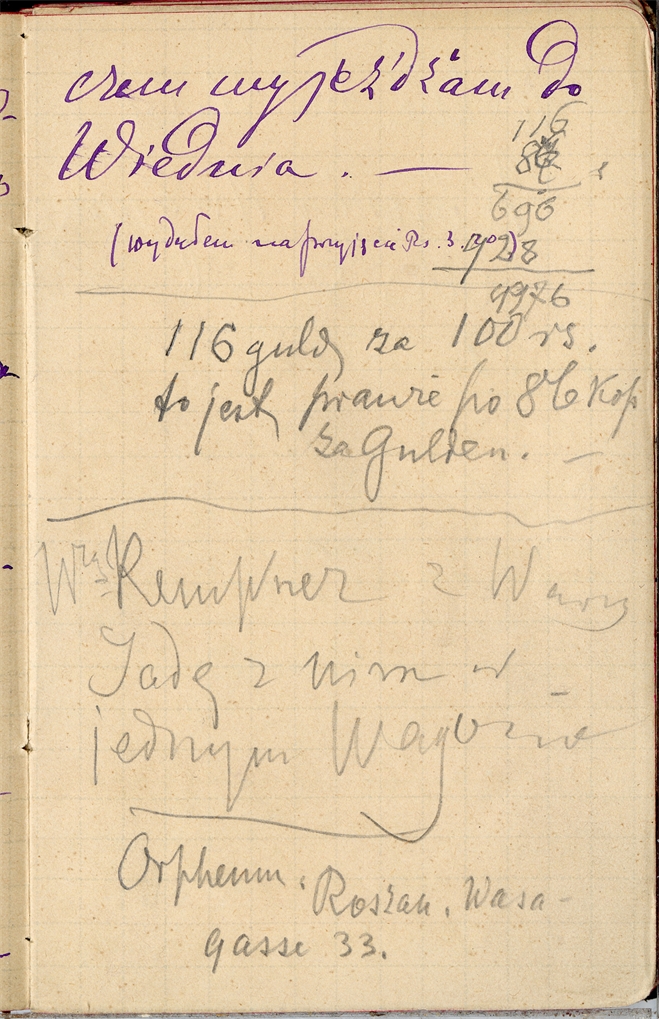 czem wyjeżdżam do
Wiednia. —
116
86
696
928
9976
(wydałem na przyjście Rs. 3.
116 guld za 100 rs.
to jest prawie po 86 kop
za Gulden. —
Kempner z Warsz
Jadę z nim w
jednym Wagonie
Orpheum. Roszan. Wasa-
gasse 33.